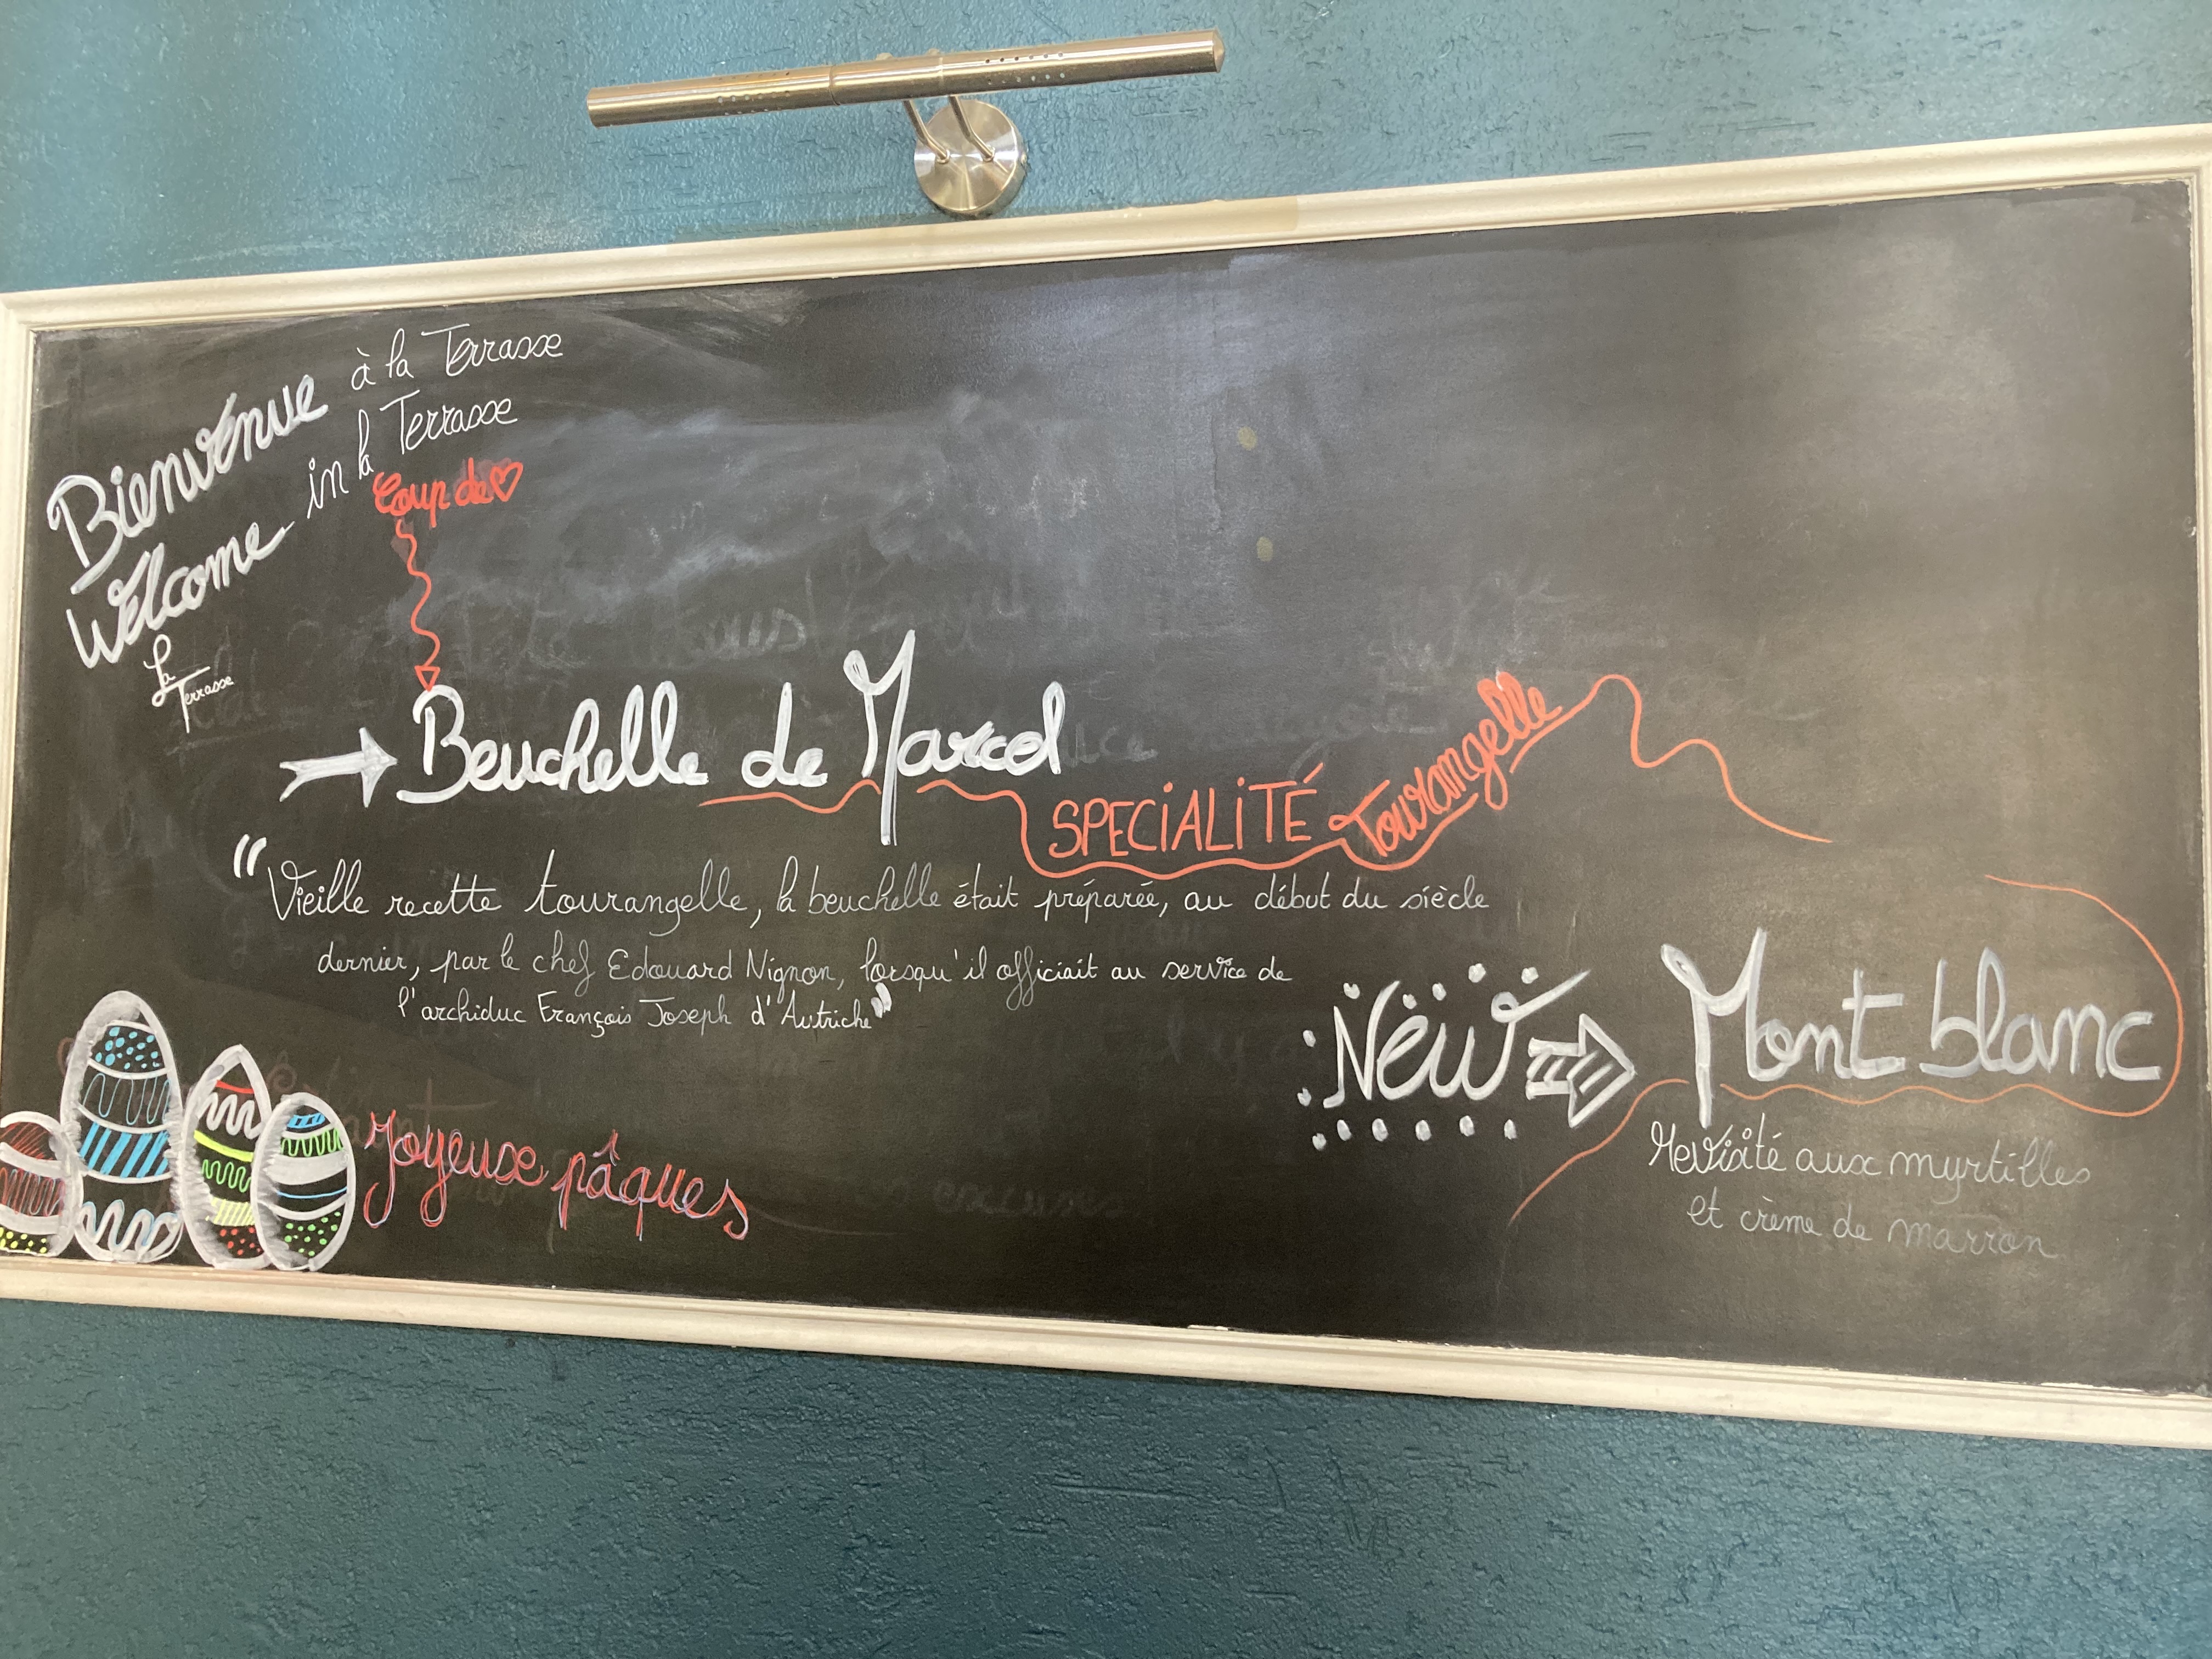 Bienvenue à la Terrasse
Welcome in la Terrasse
La
Terrasse
Coup de ♡
Beuchelle de Marcel
SPECIALITÉ Tourangelle
"Vieille recette tourangelle, la beuchelle était préparée, au début du siècle
dernier, par le chef Edouard Nignon, lorsqu'il officiait au service de
l'archiduc François Joseph d'Autriche"
New
Mont blanc
revisité aux myrtilles
et crème de marron
Joyeuse pâques